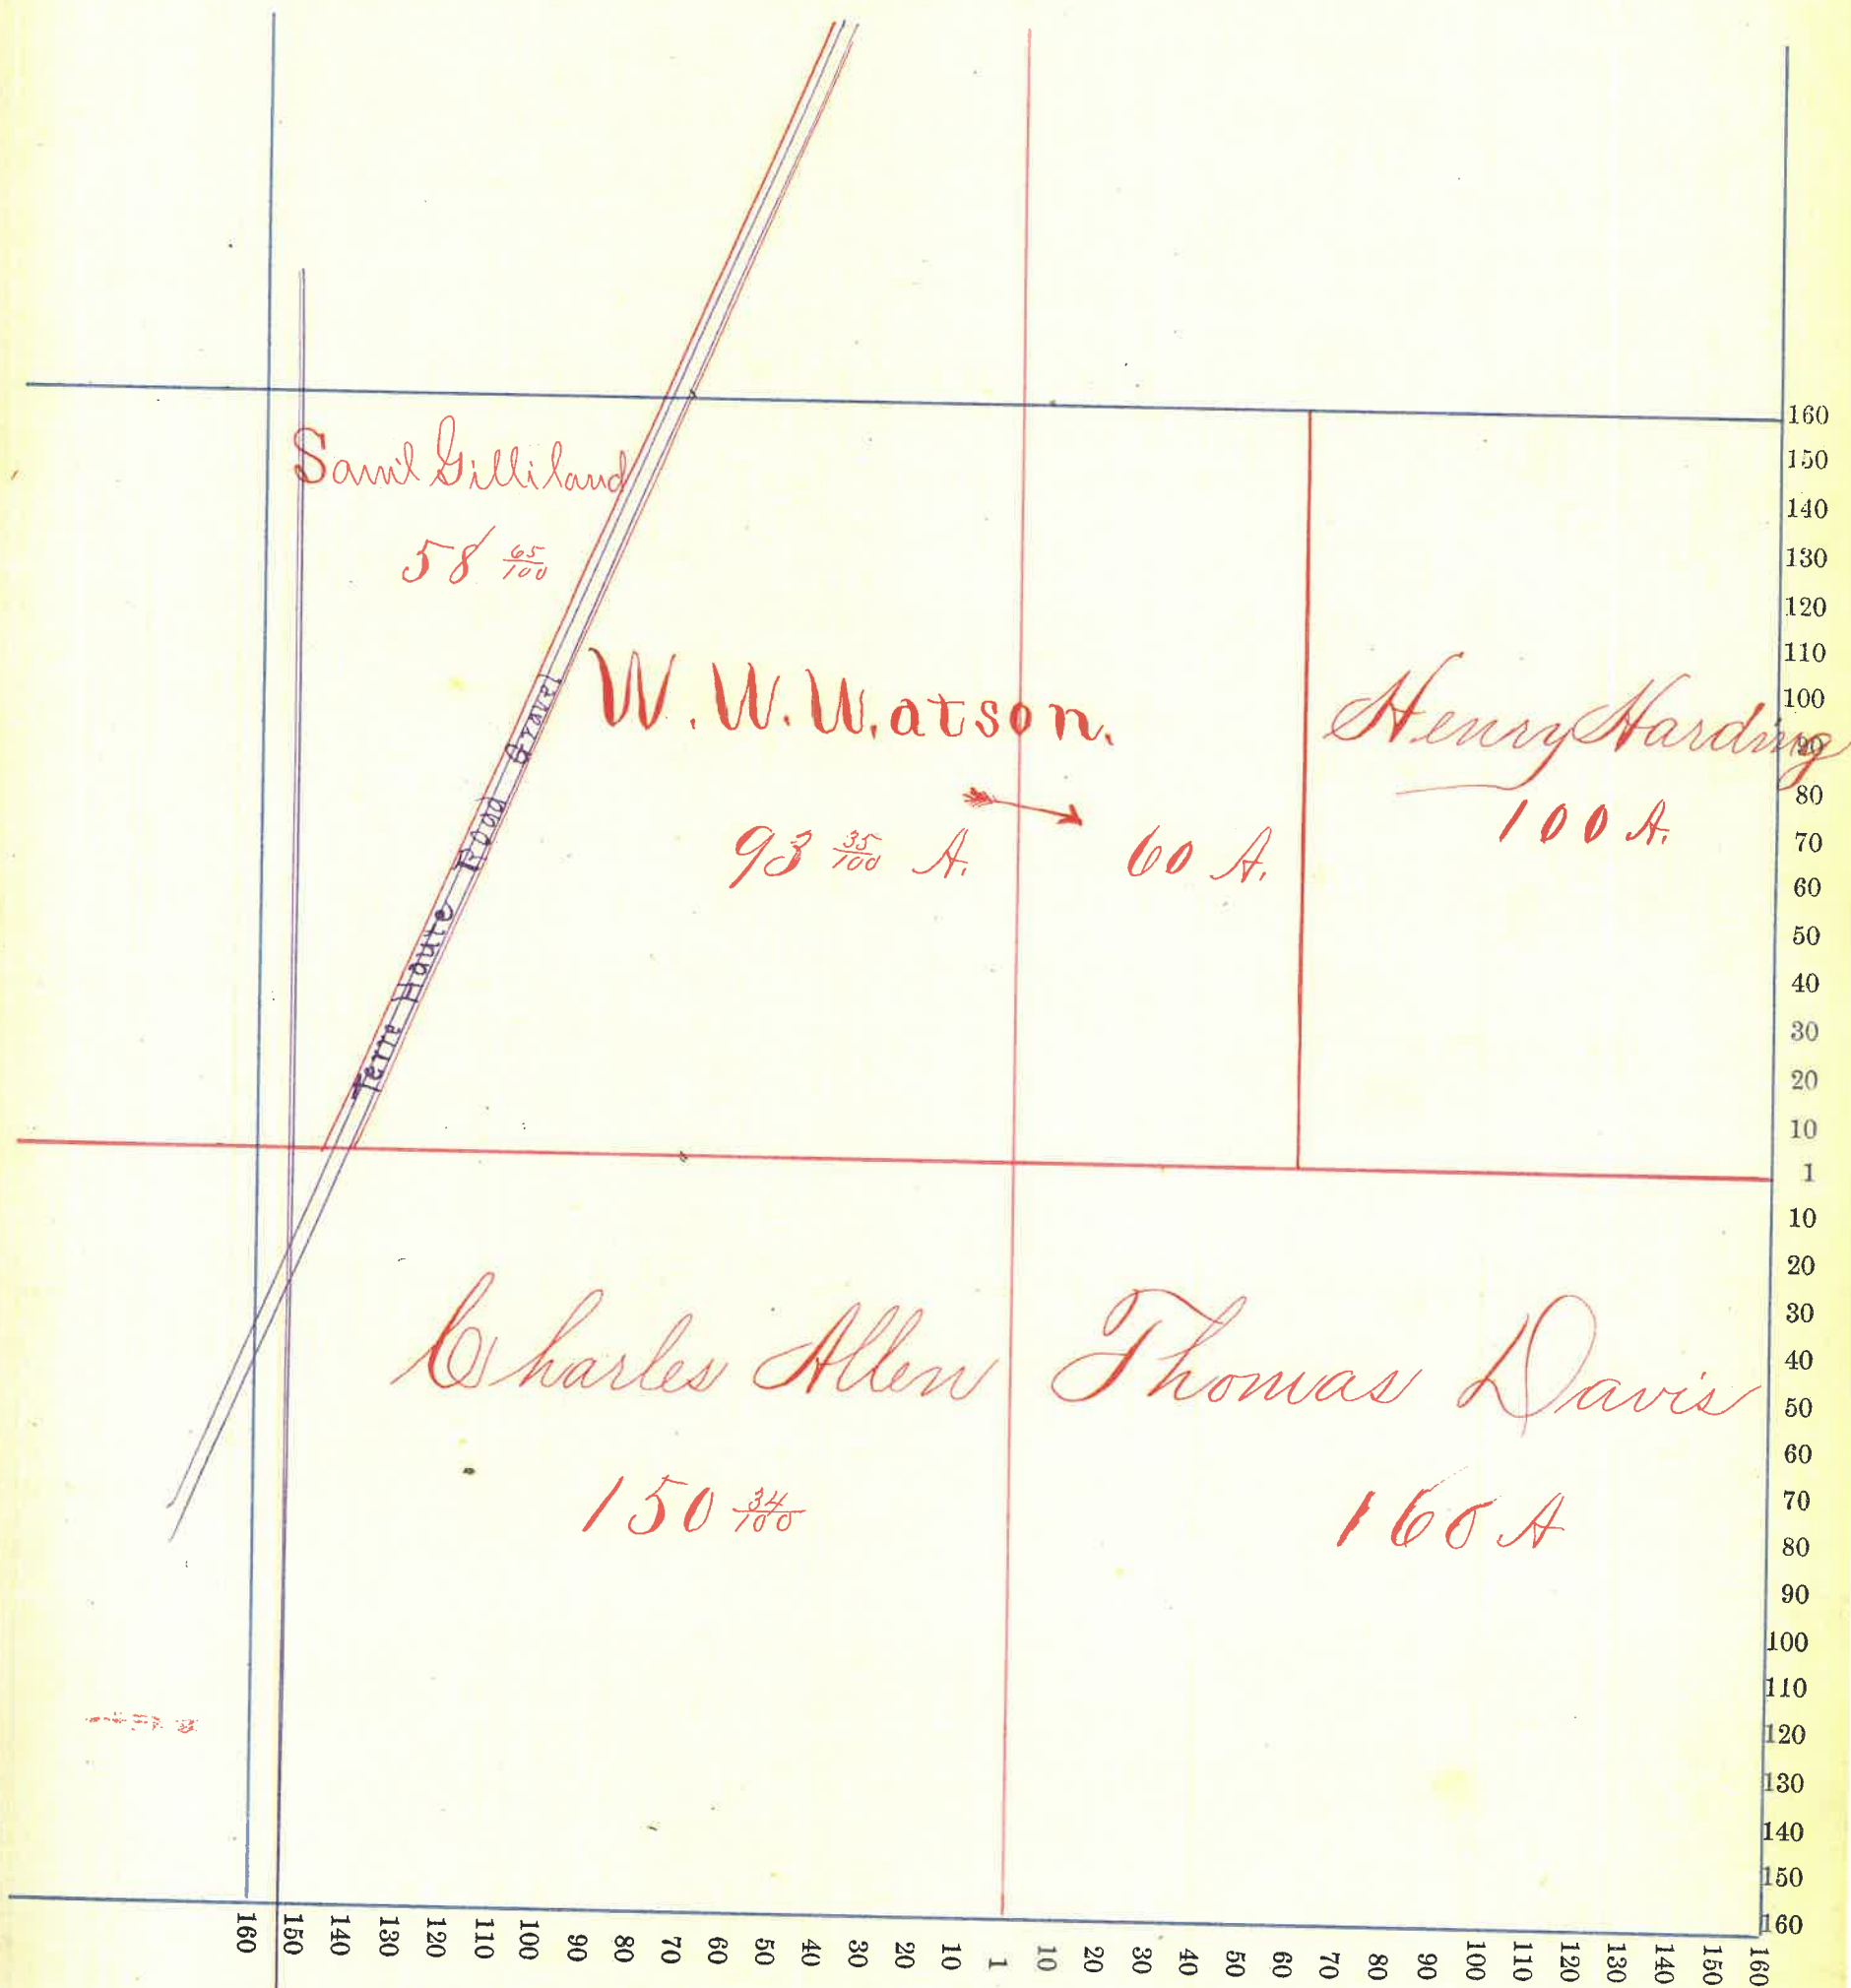 Sam'l Gilliland
58 65/100
Terre Haute Road Gravel
W. W. Watson.
93 35/100 A.
60 A.
Henry Harding
100 A.
Charles Allen
150 34/100
Thomas Davis
160 A
160
150
140
130
120
110
100
90
80
70
60
50
40
30
20
10
1
10
20
30
40
50
60
70
80
90
100
110
120
130
140
150
160
160 150 140 130 120 110 100 90 80 70 60 50 40 30 20 10 1 10 20 30 40 50 60 70 80 90 100 110 120 130 140 150 160